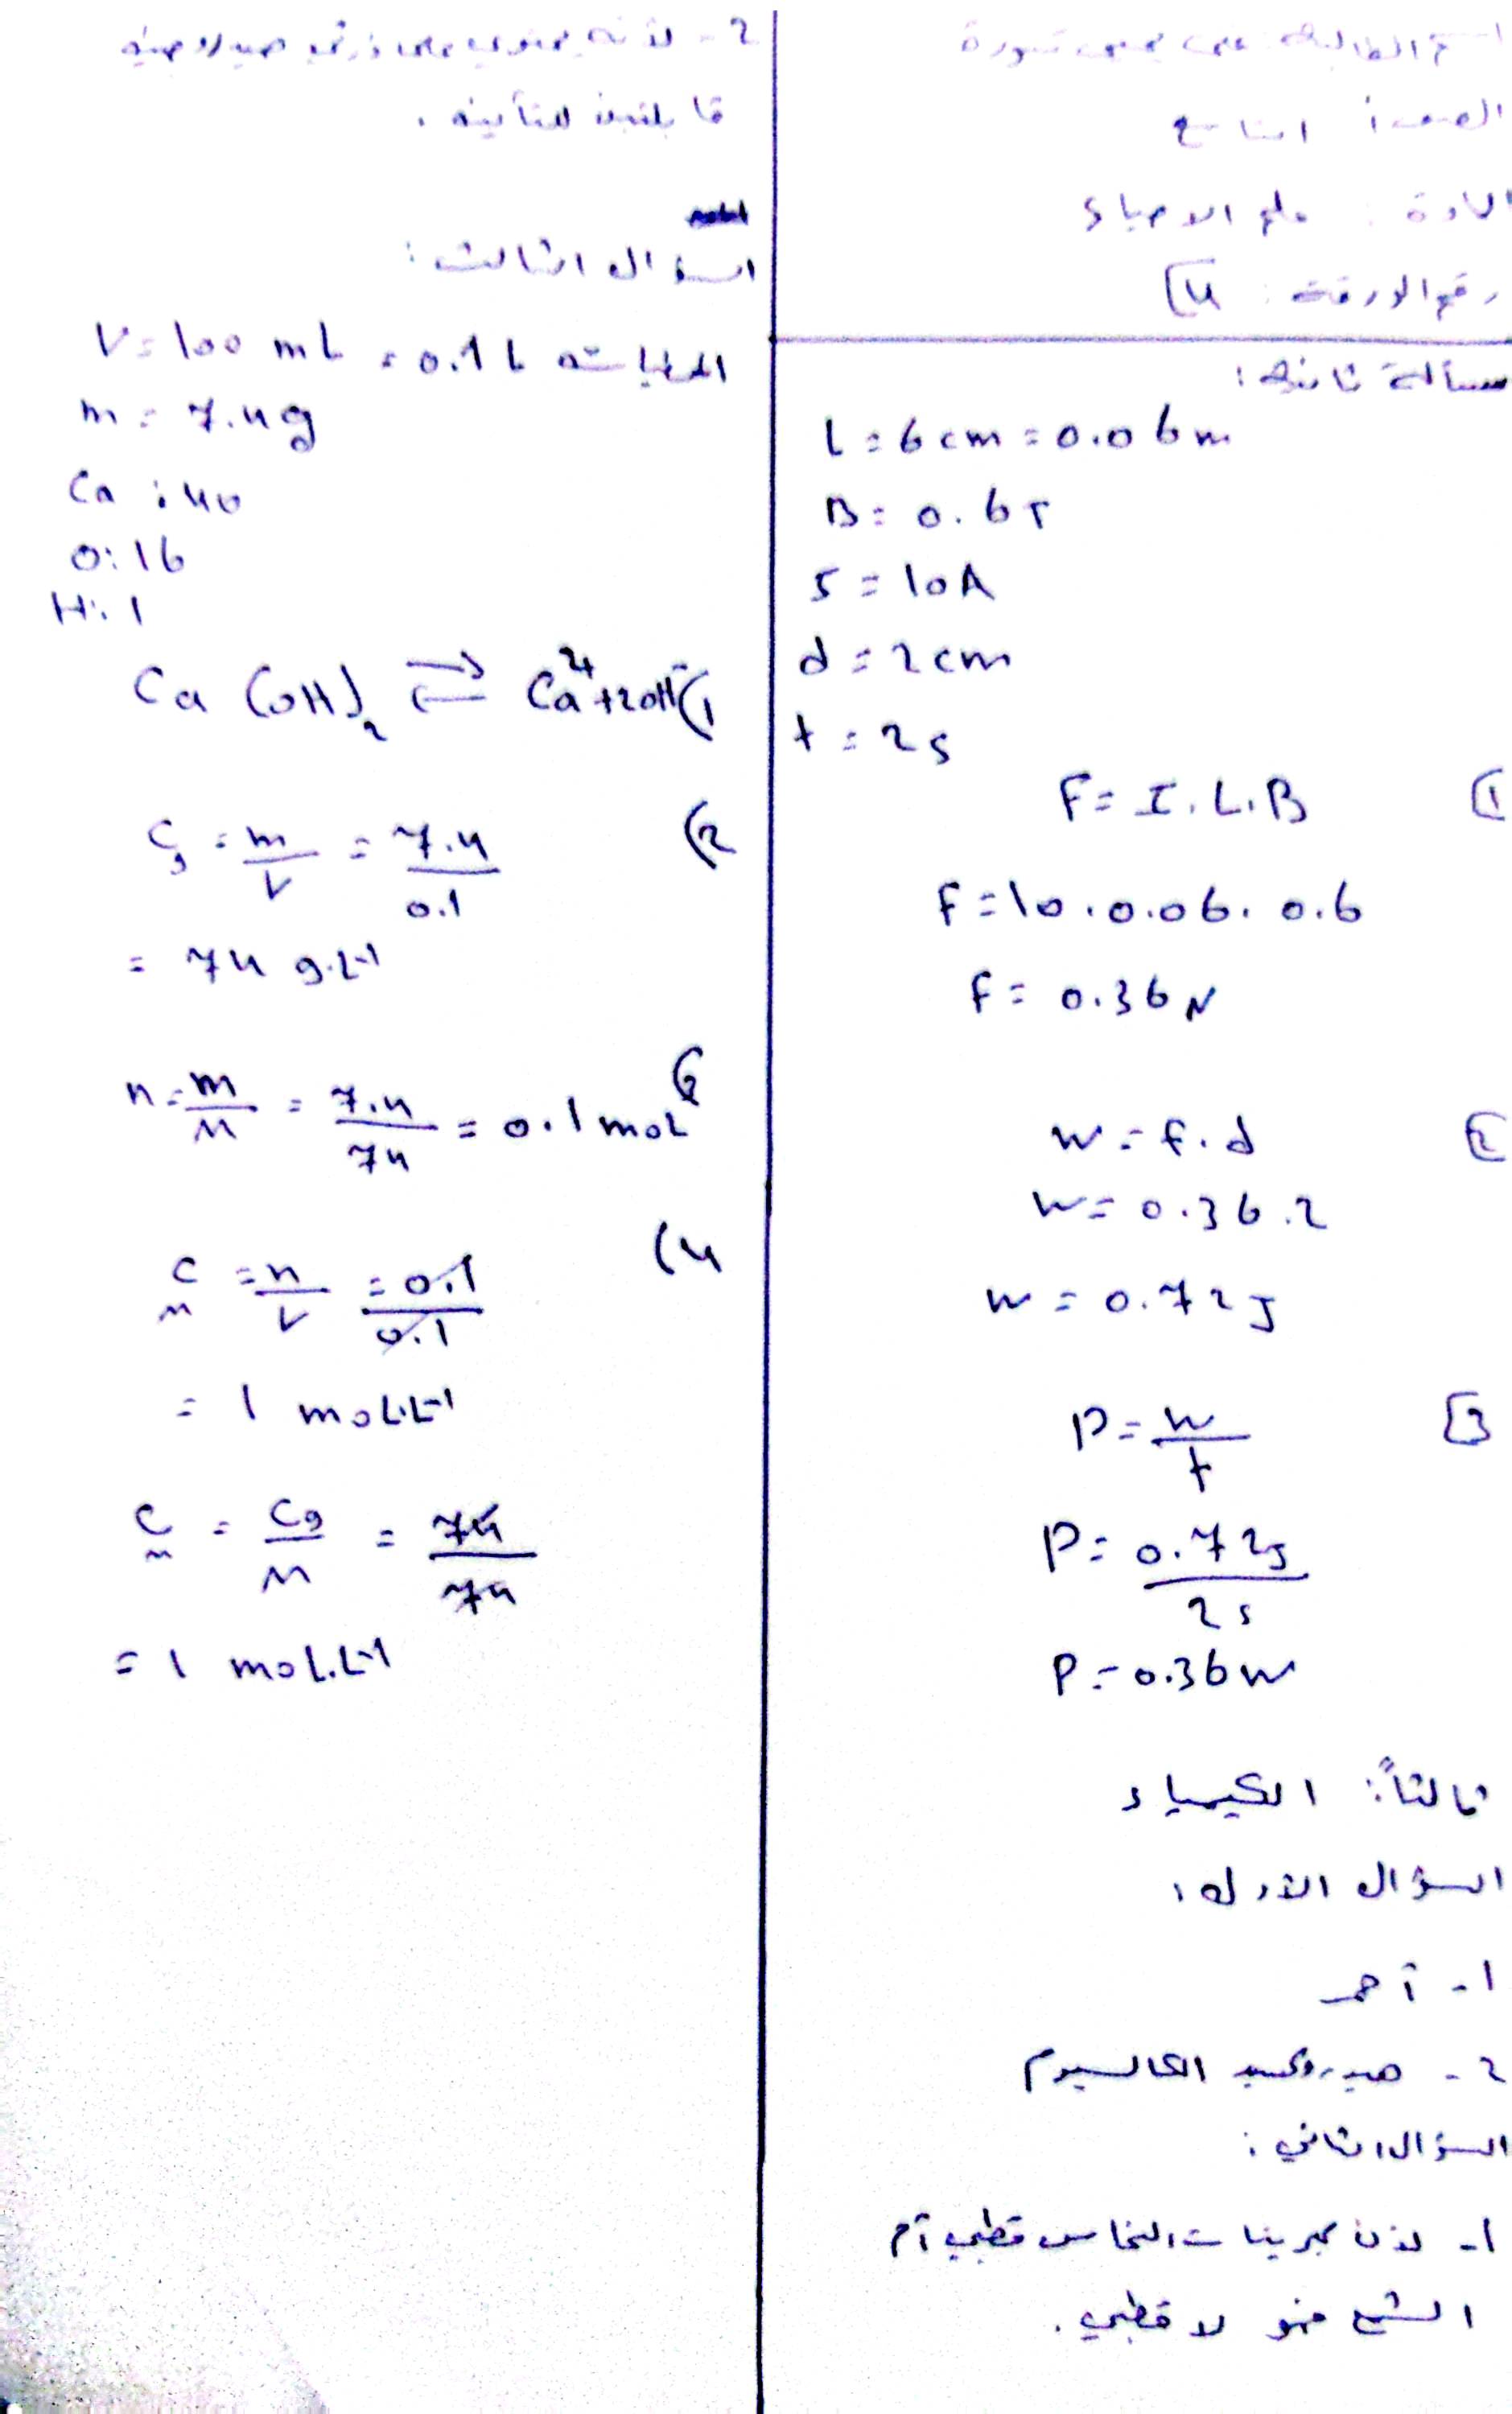 اسم الطالبة: يحيى شورة
الصف: التاسع
المادة: علم الاحياء
رقم الورقة: 4]
مسألة ثانية:
L = 6 cm = 0.06 m
B = 0.6 T
I = 10 A
d = 2 cm
t = 2 s
1) F = I . L . B
F = 10 . 0.06 . 0.6
F = 0.36 N
2] W = F . d
W = 0.36 . 2
W = 0.72 J
3] P = W / t
P = 0.72 J / 2 s
P = 0.36 W
ثالثاً: الكيمياء
السؤال الأول:
1- أحمر
2- هيدروكسيد الكالسيوم
السؤال الثاني:
1- لأن كبريتات النحاس قطبي أم
الشمع فهو لا قطبي.
2- لأنه يحتوي على ذرتي هيدروجين
قابلتين للتأين.
السؤال الثالث:
المعطيات V = 100 mL = 0.1 L
m = 7.4 g
Ca : 40
O : 16
H : 1
1) Ca(OH)₂ ⇌ Ca²⁺ + 2OH⁻
2) Cg = m / V = 7.4 / 0.1
= 74 g.L⁻¹
n = m / M = 7.4 / 74 = 0.1 mol
4) Cm = n / V = 0.1 / 0.1
= 1 mol.L⁻¹
Cm = Cg / M = 74 / 74
= 1 mol.L⁻¹